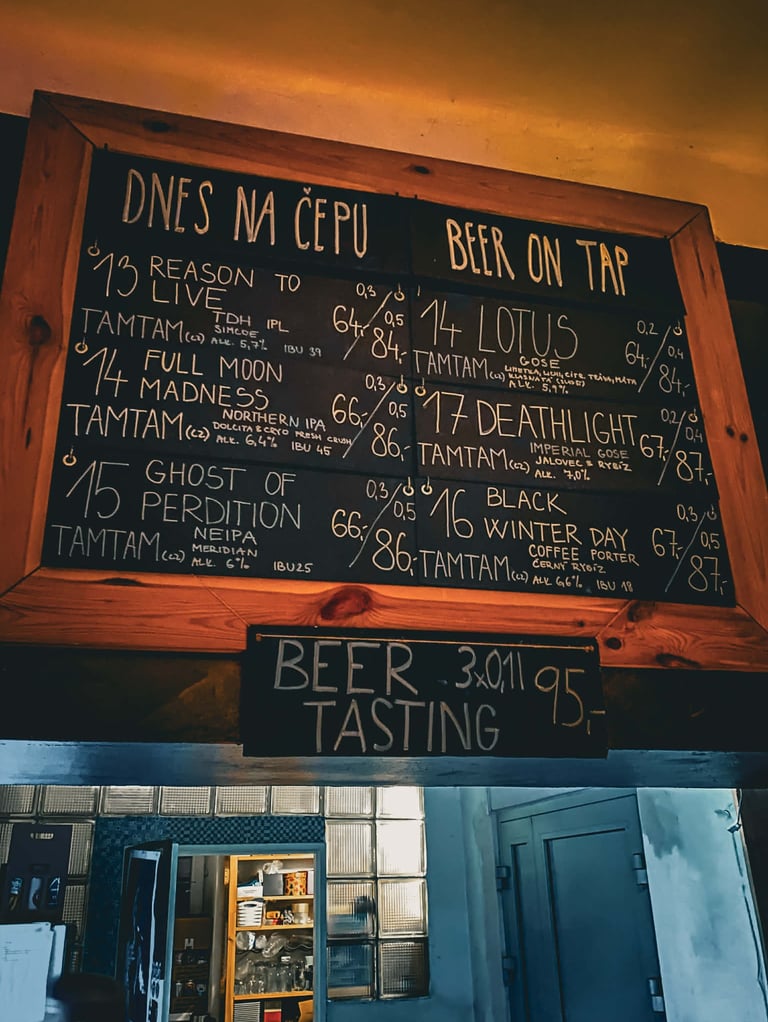 DNES NA ČEPU
13 REASON TO
LIVE
TDH IPL
SIMCOE
TAMTAM(CZ) ALK. 5,7% IBU 39
0,3
64,-
0,5
84,-
14 FULL MOON
MADNESS
NORTHERN IPA
DOLCITA & CRYO FRESH CRUSH
TAMTAM(CZ) ALK. 6,4% IBU 45
0,3
66,-
0,5
86,-
15 GHOST OF
PERDITION
NEIPA
MERIDIAN
TAMTAM(CZ) ALK. 6% IBU25
0,3
66,-
0,5
86,-
BEER ON TAP
14 LOTUS
GOSE
TAMTAM(CZ)
ALK. 5,9%
0,2
64,-
0,4
84,-
17 DEATHLIGHT
IMPERIAL GOSE
TAMTAM(CZ) JALOVEC & RYBÍZ
ALK. 7,0%
0,2
67,-
0,4
87,-
16 BLACK
WINTER DAY
COFFEE PORTER
ČERNÝ RYBÍZ
TAMTAM(CZ) ALK. 6,6% IBU 18
0,3
67,-
0,5
87,-
BEER 3x0,1l 95,-
TASTING